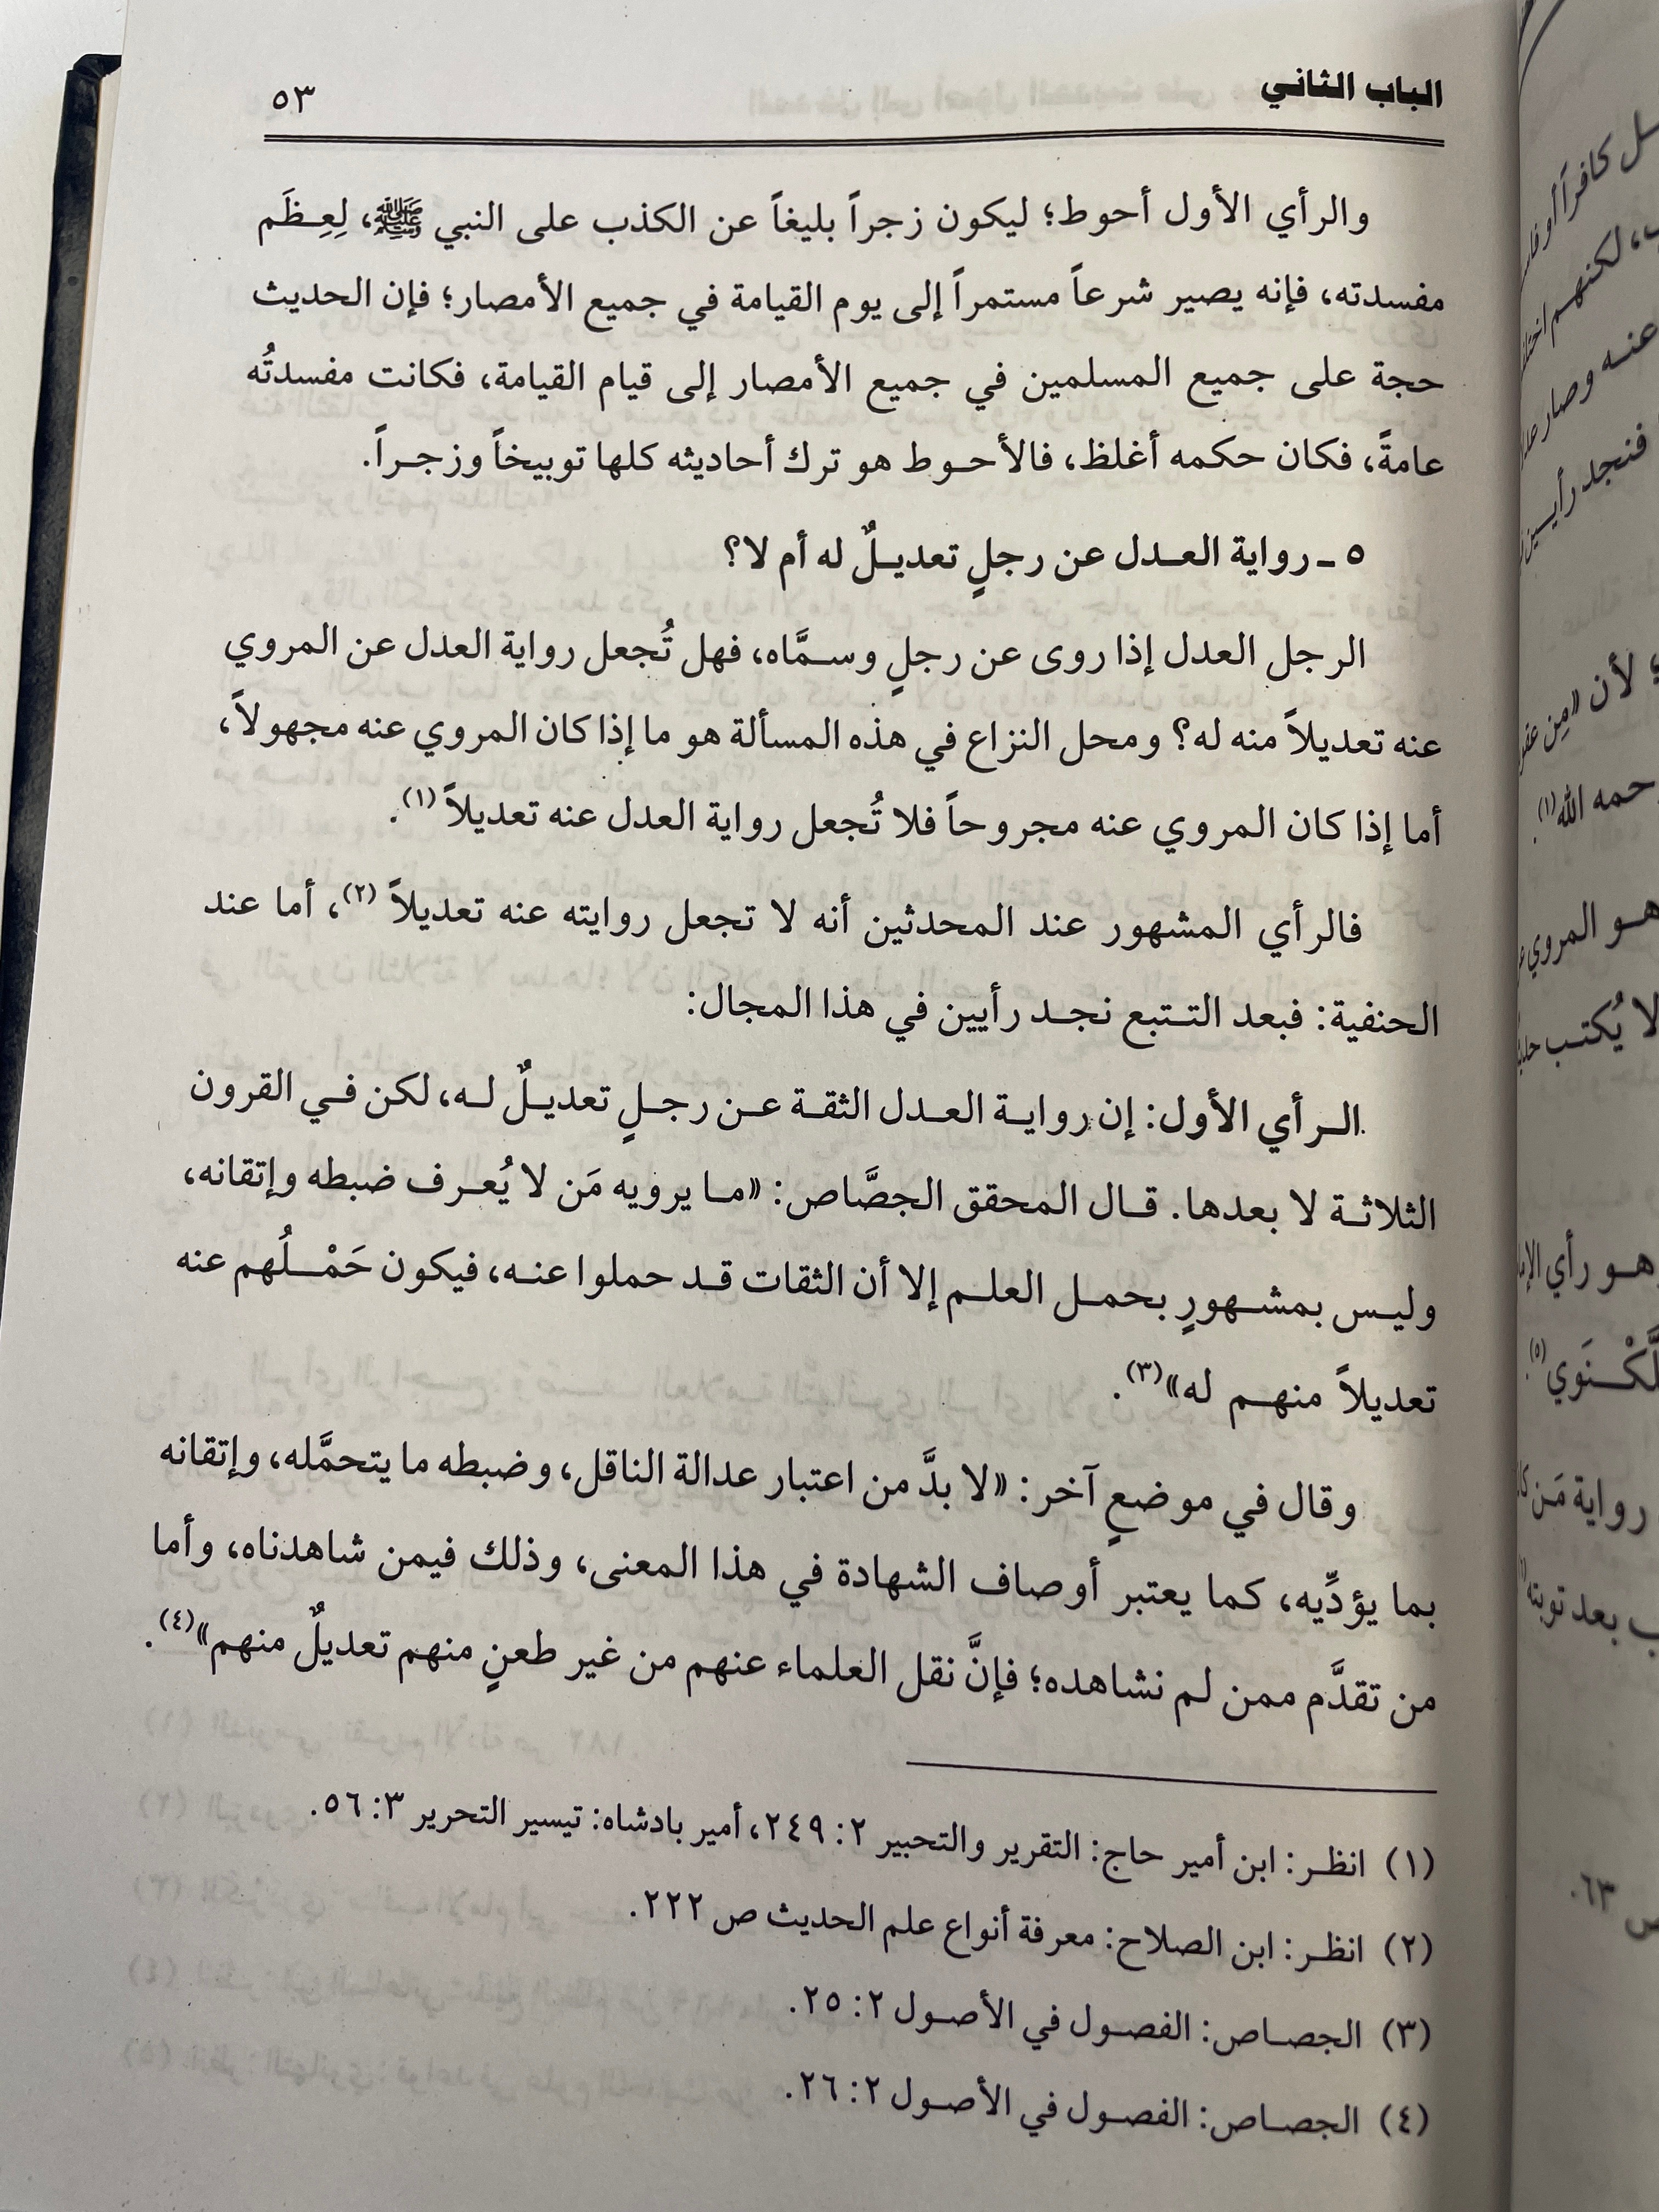 الباب الثاني ٥٣
والرأي الأول أحوط؛ ليكون زجراً بليغاً عن الكذب على النبي ﷺ، لِعِظَم
مفسدته، فإنه يصير شرعاً مستمراً إلى يوم القيامة في جميع الأمصار؛ فإن الحديث
حجة على جميع المسلمين في جميع الأمصار إلى قيام القيامة، فكانت مفسدتُه
عامةً، فكان حكمه أغلظ، فالأحوط هو ترك أحاديثه كلها توبيخاً وزجراً.
٥ ـ رواية العدل عن رجلٍ تعديلٌ له أم لا؟
الرجل العدل إذا روى عن رجلٍ وسمَّاه، فهل تُجعل رواية العدل عن المروي
عنه تعديلاً منه له؟ ومحل النزاع في هذه المسألة هو ما إذا كان المروي عنه مجهولاً،
أما إذا كان المروي عنه مجروحاً فلا تُجعل رواية العدل عنه تعديلاً (١).
فالرأي المشهور عند المحدثين أنه لا تجعل روايته عنه تعديلاً (٢)، أما عند
الحنفية: فبعد التتبع نجد رأيين في هذا المجال:
الرأي الأول: إن رواية العدل الثقة عن رجلٍ تعديلٌ له، لكن في القرون
الثلاثة لا بعدها. قال المحقق الجصَّاص: «ما يرويه مَن لا يُعرف ضبطه وإتقانه،
وليس بمشهورٍ بحمل العلم إلا أن الثقات قد حملوا عنه، فيكون حَمْلُهم عنه
تعديلاً منهم له»(٣).
وقال في موضعٍ آخر: «لا بدَّ من اعتبار عدالة الناقل، وضبطه ما يتحمَّله، وإتقانه
بما يؤدِّيه، كما يعتبر أوصاف الشهادة في هذا المعنى، وذلك فيمن شاهدناه، وأما
من تقدَّم ممن لم نشاهده؛ فإنَّ نقل العلماء عنهم من غير طعنٍ منهم تعديلٌ منهم»(٤).
(١) انظر: ابن أمير حاج: التقرير والتحبير ٢: ٢٤٩، أمير بادشاه: تيسير التحرير ٣: ٥٦.
(٢) انظر: ابن الصلاح: معرفة أنواع علم الحديث ص ٢٢٢.
(٣) الجصاص: الفصول في الأصول ٢: ٢٥.
(٤) الجصاص: الفصول في الأصول ٢: ٢٦.
كافراً أو
لكنهم
عنه وصار
فنجد رأيين
لأن «مِن
الله(١).
هو المروي
لا يُكتب
هو رأي
(٥)
رواية مَن
بعد توبته
٦٣.